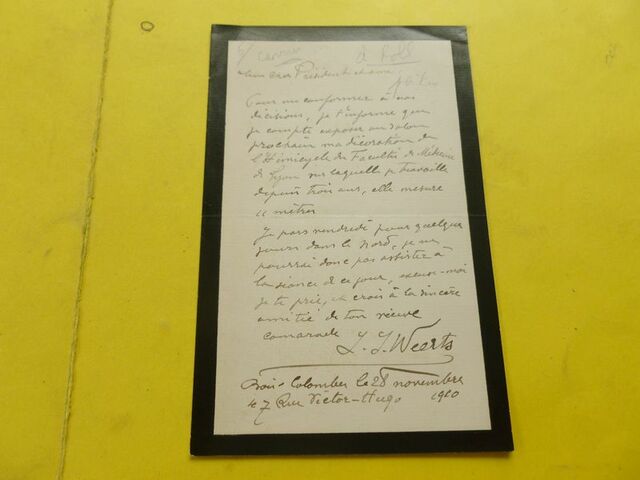 à Roll
Mon cher Président et ami
Pour me conformer à nos
décisions, je t'informe que
je compte exposer au Salon
prochain ma décoration de
l'Hémicycle des Facultés de Médecine
de Lyon sur laquelle je travaille
depuis trois ans, elle mesure
mètres
Je pars vendredi pour quelques
jours dans le Nord, je ne
pourrai donc pas assister à
la séance de ce jour, excuse-moi
je te prie, et crois à la sincère
amitié de ton
camarade J. J. Weerts
Bois-Colombes le 28 novembre
7 Rue Victor-Hugo 1910